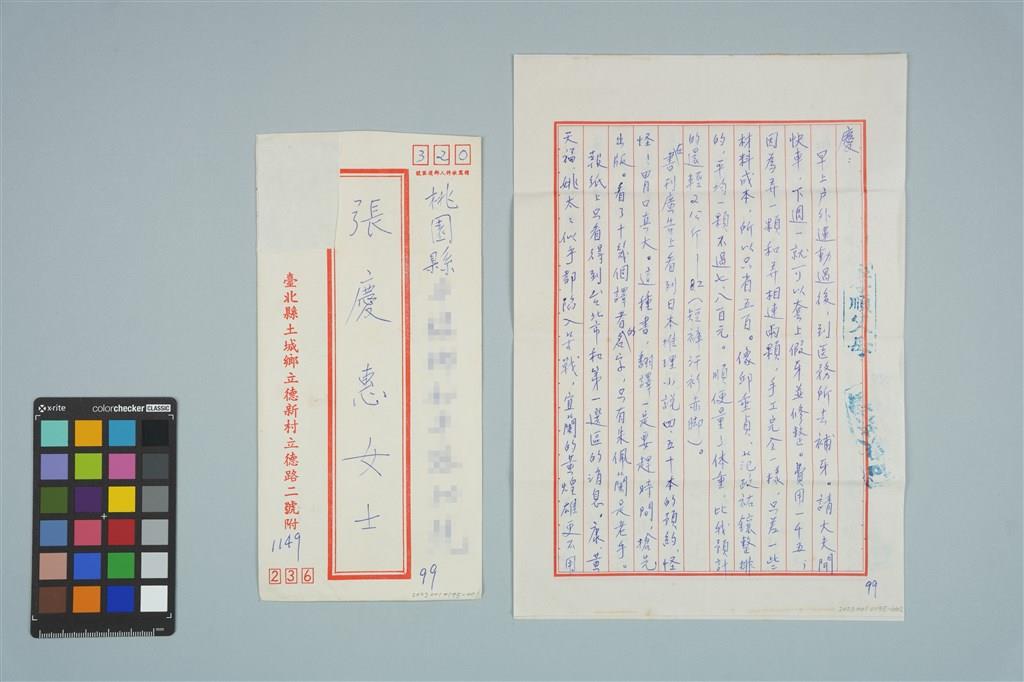 320
請寫收件人郵遞區號
桃園縣
張慶惠女士
臺北縣土城鄉立德新村立德路二號附
1149
236
99
20220010195-001
x-rite
colorchecker CLASSIC
mm
慶：
早上戶外運動過後，到醫務所去補牙。請大夫開
快車，下週一就可以套上假牙並修整。費用一千五，
因為弄一顆和弄相連兩顆，手工完全一樣，只差一些
材料成本，所以只省五百。像邱垂貞、范政祐鑲整排
的，平均一顆不過七、八百元。順便量了体重，比我預計
的還輕2公斤—82（短褲汗衫赤腳）。
在書刊廣告上看到日本推理小説四、五十本的預約，怪
怪！胃口真大。這種書，翻譯一定要趕時間，搶先
出版。看了十幾個譯者的名字，只有朱佩蘭是老手。
報紙上只看得到台北市和第一選區的消息。康、黃
天福、姚太太似乎都陷入苦戰，宜蘭的黃煌雄更不用
順父母
99
20220010195-002